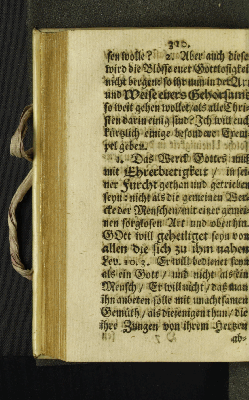 310.
sen wolle? 2. Aber auch diese
wird die Blösse euer Gottlosigkei
nicht bergen/ so ihr nun in der Art
und Weise euers Gehorsams
so weit gehen wollet/ als alle Chri-
sten darin einig sind? Ich will euch
kürtzlich einige besondere Exem-
pel geben.
1. Das Werck Gottes muß
mit Ehrerbietigkeit / in sei-
ner Furcht gethan und getrieben
seyn: nicht als die gemeinen Wer-
cke der Menschen/ mit einer gemei-
nen sorglosen Art und obenhin.
GOtt will geheiliget seyn von
allen die sich zu ihm nahen
Lev. 10. 3. Er will bedienet seyn
als ein Gott / und nicht als ein
Mensch / Er will nicht / daß man
ihn anbeten solle mit unachtsamen
Gemüth / als diejenigen thun / die
ihre Zungen von ihrem Hertzen
ab-